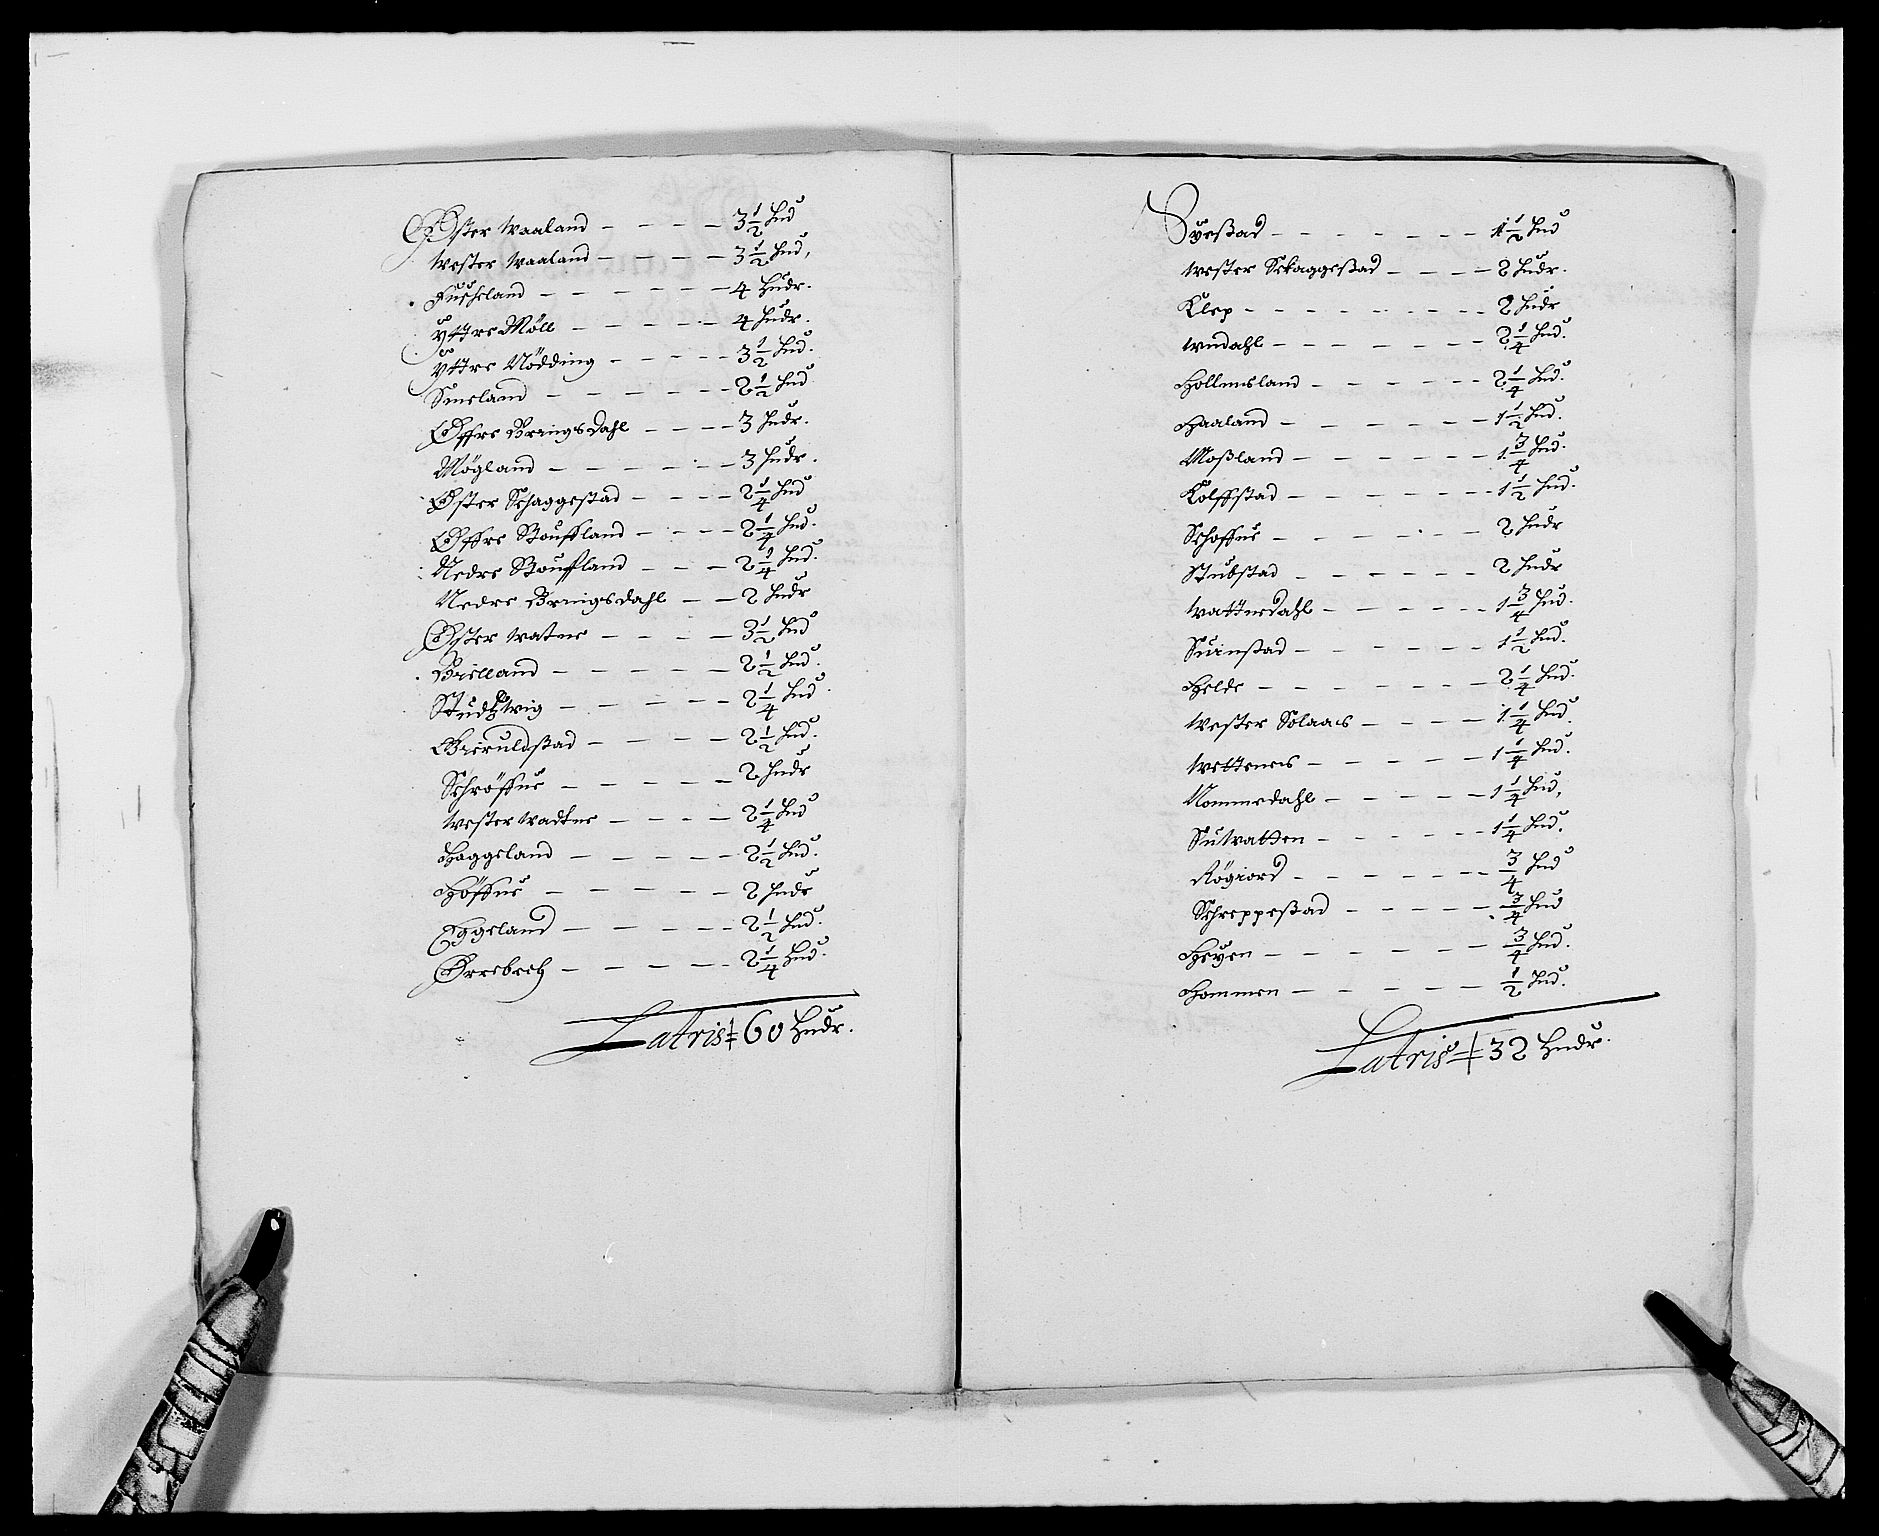 Øster Waaland - - - - 3 1/2 hud
Wester Waaland - - - - 3 1/2 hud,
Fuscheland - - - - - - 4 hudr.
Yttre Møll - - - - - 4 hudr.
Yttre Nödding - - - - 3 1/2 hud.
Smeland - - - - - - 2 1/2 hud
Øffre Bringsdahl - - - - 3 hudr.
Mögland - - - - - - 3 hudr.
Øster Schaggestad - - - - 2 1/4 hud
Øffre Stouffland - - - - 2 1/4 hud.
Nedre Stouffland - - - 2 1/4 hud.
Nedre Bringsdahl - - 2 hudr
Øster Watne - - - - 3 1/2 hud
Bielland - - - - - 2 1/2 hud.
Studtzwig - - - - - 2 1/4 hud.
Gieruldstad - - - - 2 1/2 hud.
Schröffne - - - - - 2 hudr
Wester Wadtne - - - - 2 1/4 hud
Haggeland - - - - - 2 1/2 hud.
Höffne - - - - - 2 hudr
Eggeland - - - - - 2 1/2 hud.
Ørrebech - - - - - 2 1/4 hud.
Latris 60 hudr.
Sveßad - - - - - - - 1 1/2 hud
Wester Sckaggeßad - - - - 2 hudr.
Klep - - - - - - - 2 hudr
Undahl - - - - - - 2 1/4 hud.
Hollmsland - - - - - 2 1/4 hud.
Haaland - - - - - - 1 1/2 hud.
Moßland - - - - - - 1 3/4 hud.
Kolffstad - - - - - - 1 1/2 hud.
Schoffne - - - - - - 2 hudr
Stubstad - - - - - - 2 hudr
Wattnedahl - - - - - 1 3/4 hud.
Suinßad - - - - - - 1 1/2 hud.
Helde - - - - - - 2 1/4 hud.
Wester Solaas - - - - 1 1/4 hud.
Wettenes - - - - - 1 1/4 hud.
Nommedahl - - - - - 1 1/4 hud,
Sutvatten - - - - - 1 1/4 hud.
Rögiord - - - - - - 3/4 hud
Schreppeßad - - - - - 3/4 hud
Heyen - - - - - - 3/4 hud.
Hommen - - - - - - 1/2 hud.
Latris 32 hudr.